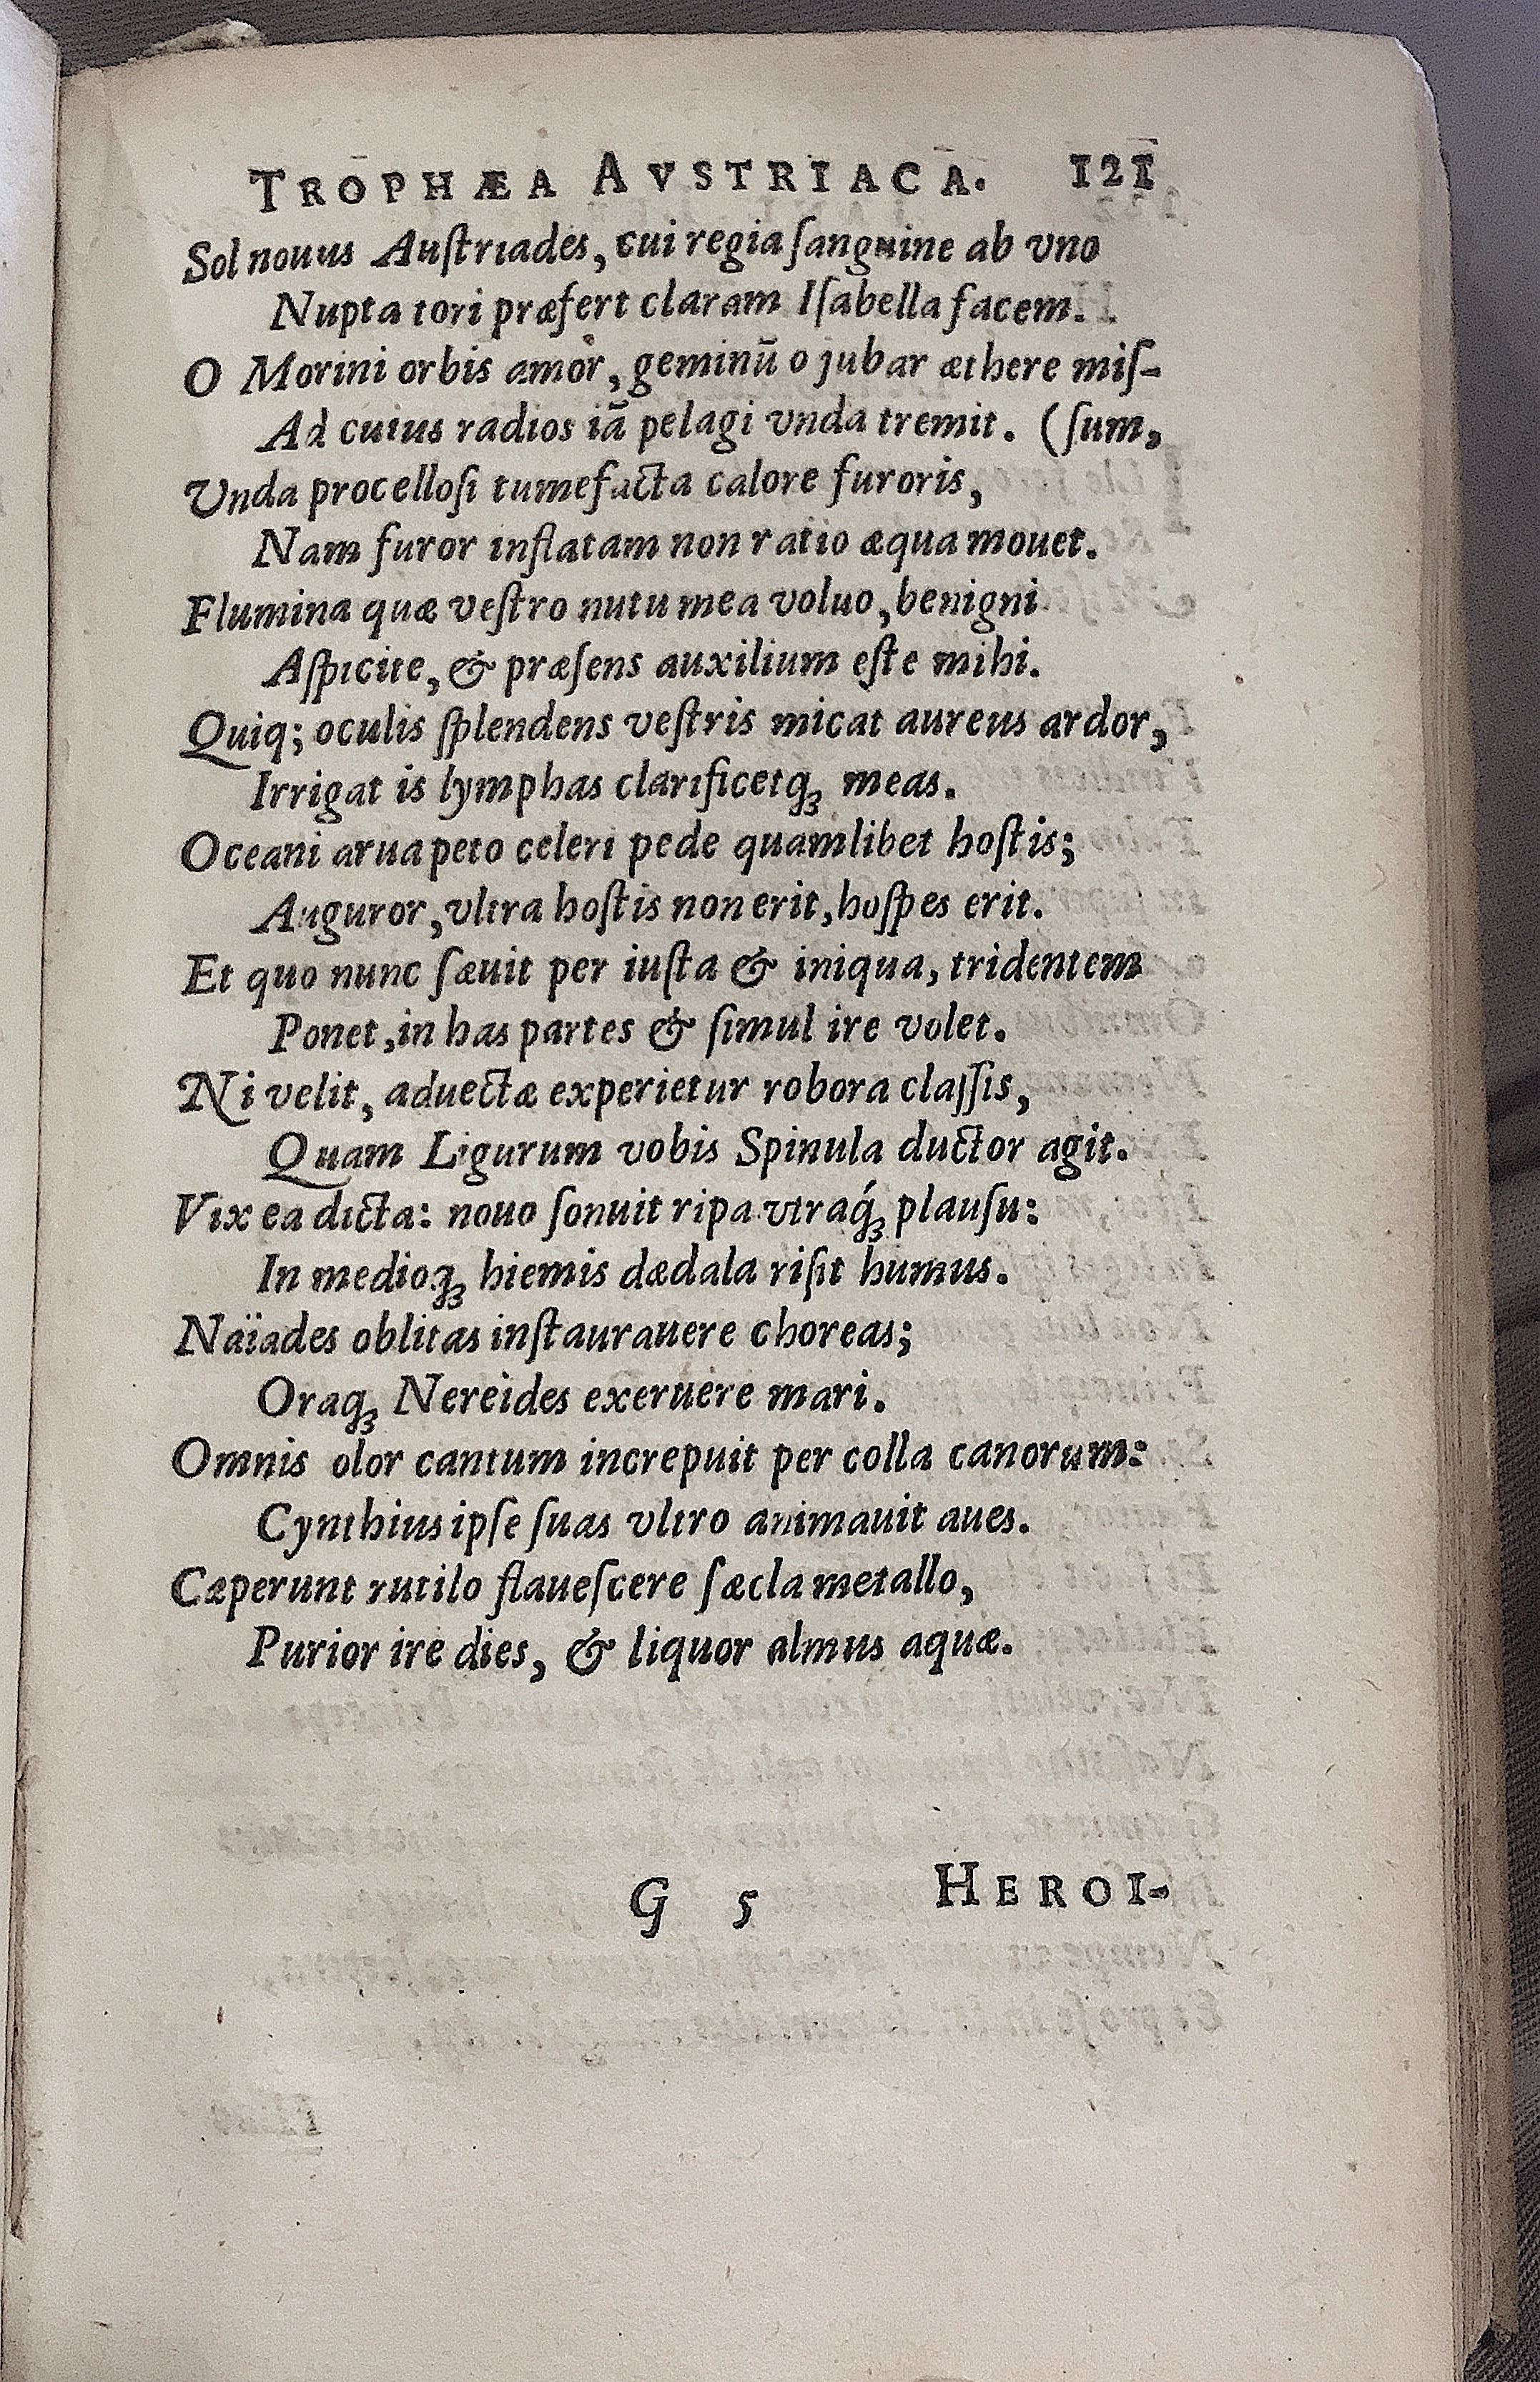 TROPHÆA AVSTRIACA. 121
Sol nouus Auſtriades, cui regia ſanguine ab vno
Nupta tori præfert claram Iſabella facem.
O Morini orbis amor, geminū o jubar æthere miſ-
Ad cuius radios iā pelagi vnda tremit. (ſum,
Vnda procelloſi tumefacta calore furoris,
Nam furor inflatam non ratio æqua mouet.
Flumina quæ veſtro nutu mea voluo, benigni
Aſpicite, & præſens auxilium eſte mihi.
Quiq; oculis ſplendens veſtris micat aureus ardor,
Irrigat is lymphas clarificetqꝫ meas.
Oceani arua peto celeri pede quamlibet hoſtis;
Auguror, vltra hoſtis non erit, hoſpes erit.
Et quo nunc ſæuit per iuſta & iniqua, tridentem
Ponet, in has partes & ſimul ire volet.
Ni velit, aduectæ experietur robora claſſis,
Quam Ligurum vobis Spinula ductor agit.
Vix ea dicta: nouo ſonuit ripa vtraq́ꝫ plauſu:
In medioqꝫ hiemis dædala riſit humus.
Naïades oblitas inſtaurauere choreas;
Oraqꝫ Nereides exeruere mari.
Omnis olor cantum increpuit per colla canorum:
Cynthius ipſe ſuas vltro animauit aues.
Cæperunt rutilo flaueſcere ſæcla metallo,
Purior ire dies, & liquor almus aquæ.
G 5 HEROI-